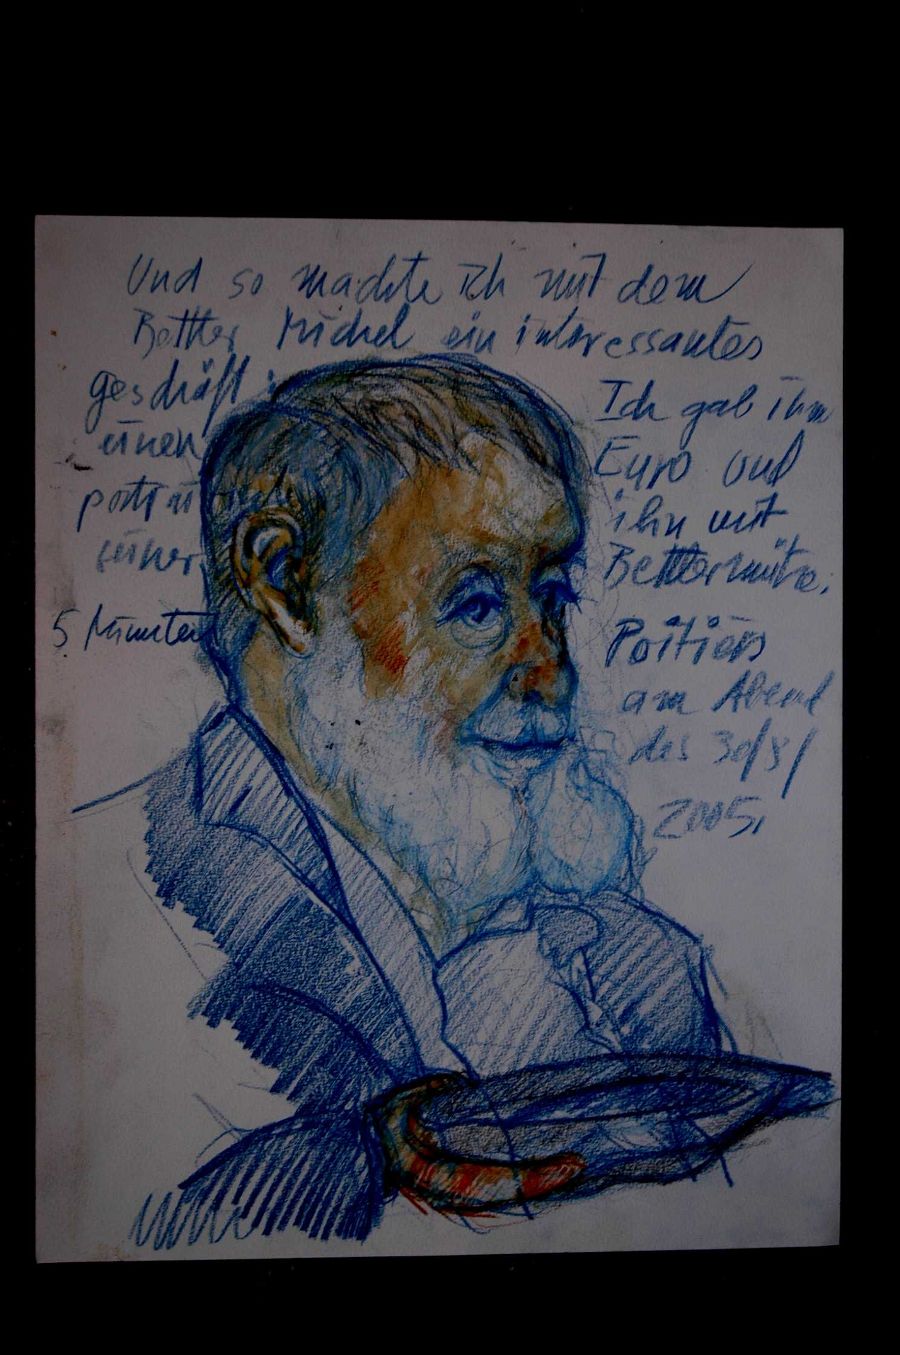 Und so machte ich mit dem
Bettler Michel ein interessantes
geschäft: Ich gab ihm
einen Euro und
porträtierte ihn mit
seiner Bettlermütze.
5 Minuten Poitiers
am Abend
des 30/8/
2005.